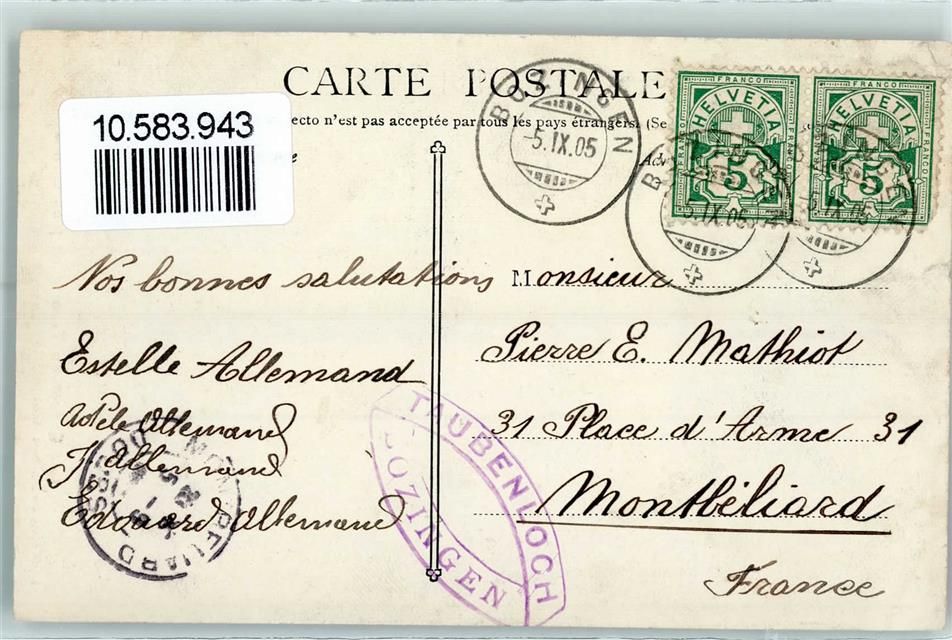 CARTE POSTALE
10.583.943
ecto n'est pas acceptée par tous les pays étrangers. (Se
BOZINGEN
-5.IX.05
FRANCO
HELVETIA
5
FRANCO
HELVETIA
5
Nos bonnes salutations
Estelle Allemand
Adèle Allemand
J. Allemand
Edouard Allemand
Monsieur
Pierre E. Mathiot
31 Place d'Arme 31
Montbéliard
France
TAUBENLOCH
BOZINGEN